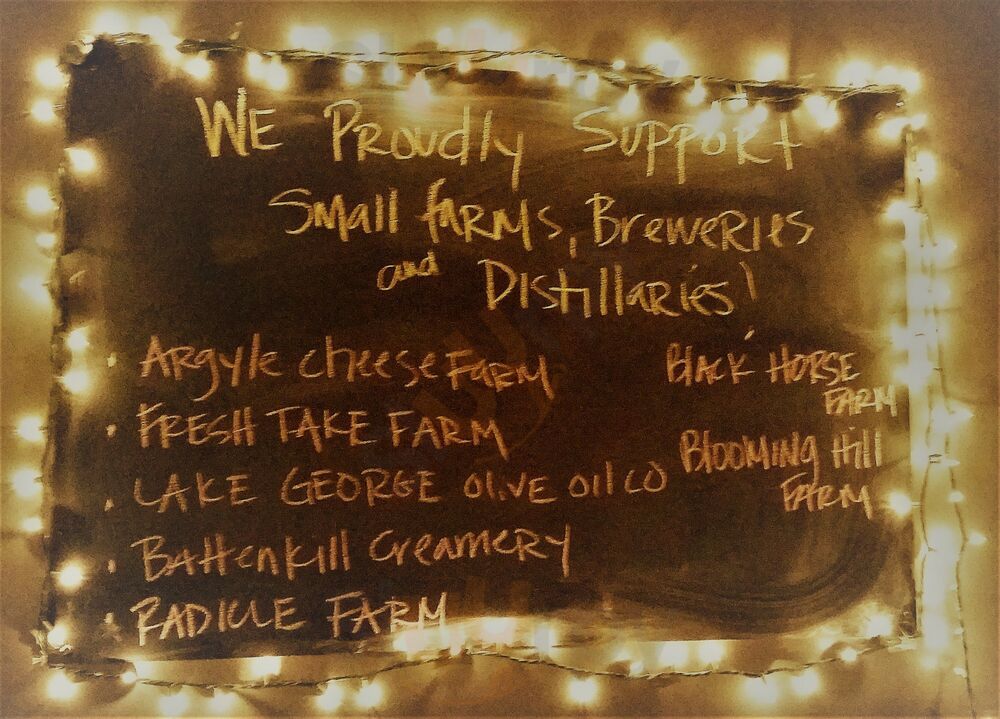 WE Proudly Support
Small Farms, Breweries
and Distillaries!
Argyle cheese Farm
FRESH TAKE FARM
LAKE GEORGE OLIVE OIL CO
Battenkill Creamery
RADICLE FARM
Black HORSE
FARM
Blooming Hill
FARM